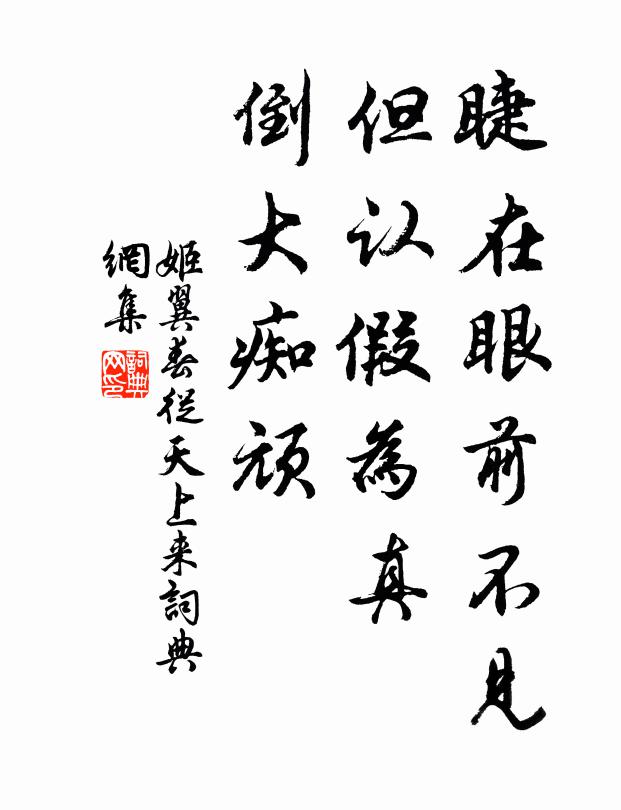 睫在眼前不見
但认假為真
倒大痴頑
姬翼春從天上来詞典
網集
詞典
网印